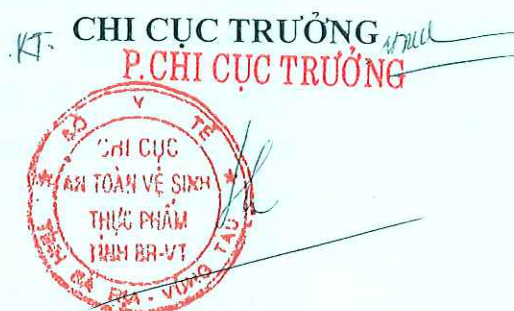 KT. CHI CỤC TRƯỞNG
P.CHI CỤC TRƯỞNG
SỞ Y TẾ
CHI CỤC
AN TOÀN VỆ SINH
THỰC PHẨM
TỈNH BR-VT
TỈNH BÀ RỊA - VŨNG TÀU